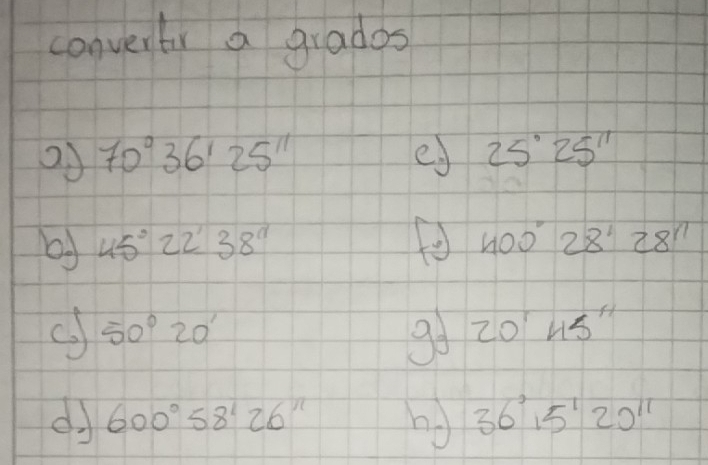 convertir a grados
a) 70° 36' 25"
e) 25° 25"
b) 45° 22' 38"
f) 400° 28' 28"
c) 50° 20'
g) 20' 45"
d) 600° 58' 26"
h) 36° 15' 20"